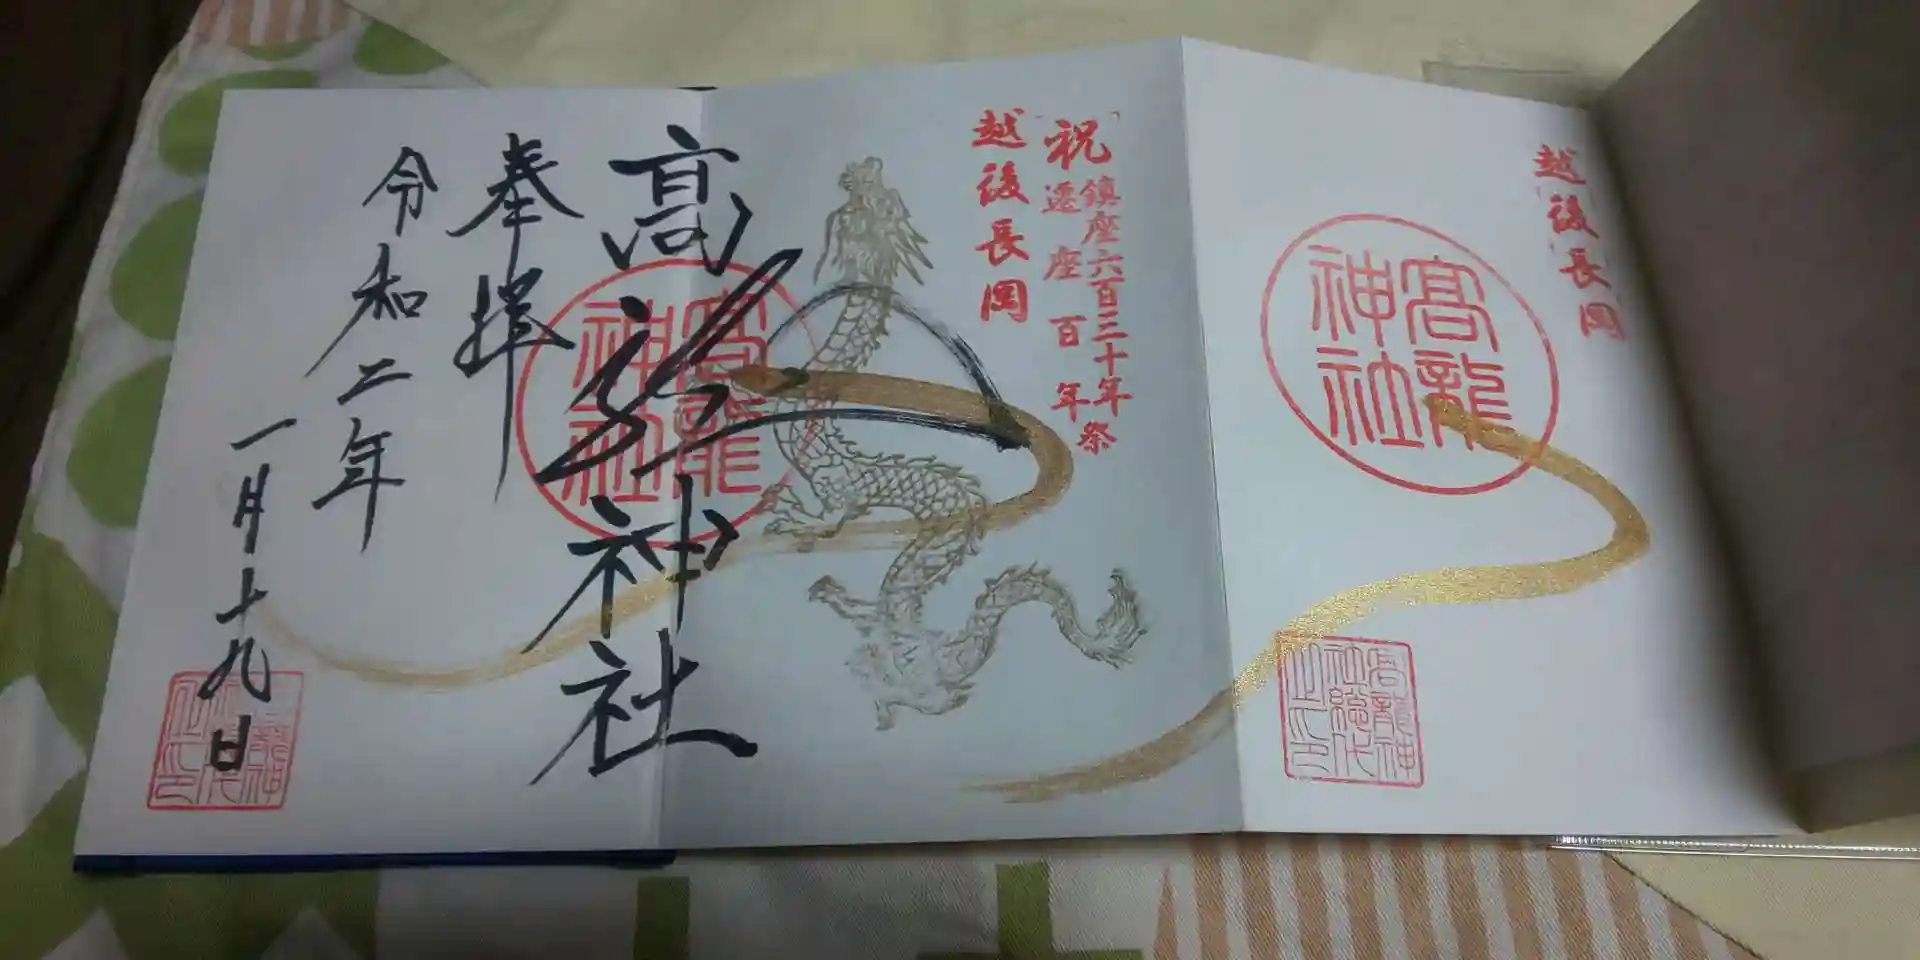 越後長岡
高龍神社
高龍神社総代之印
祝
鎮座六百三十年祭
遷座百年
越後長岡
高龍神社
高龍神社
奉拝
令和二年
一月十九日